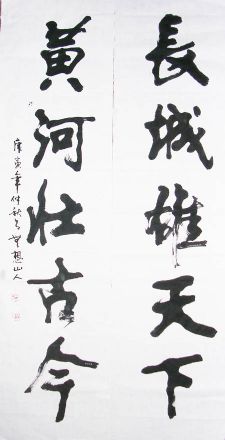 長城雄天下
黃河壯古今
庚寅年仲秋月夢想山人